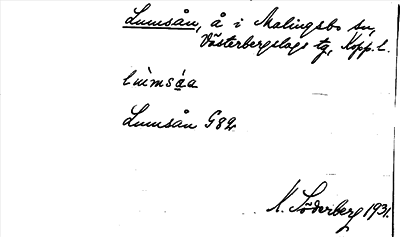 Lumsån, å i Malingsbo sn,
Västerbergslags tg, Kopp. l.
lùmsá̱a
Lumsån G82
K. Söderberg 1931.